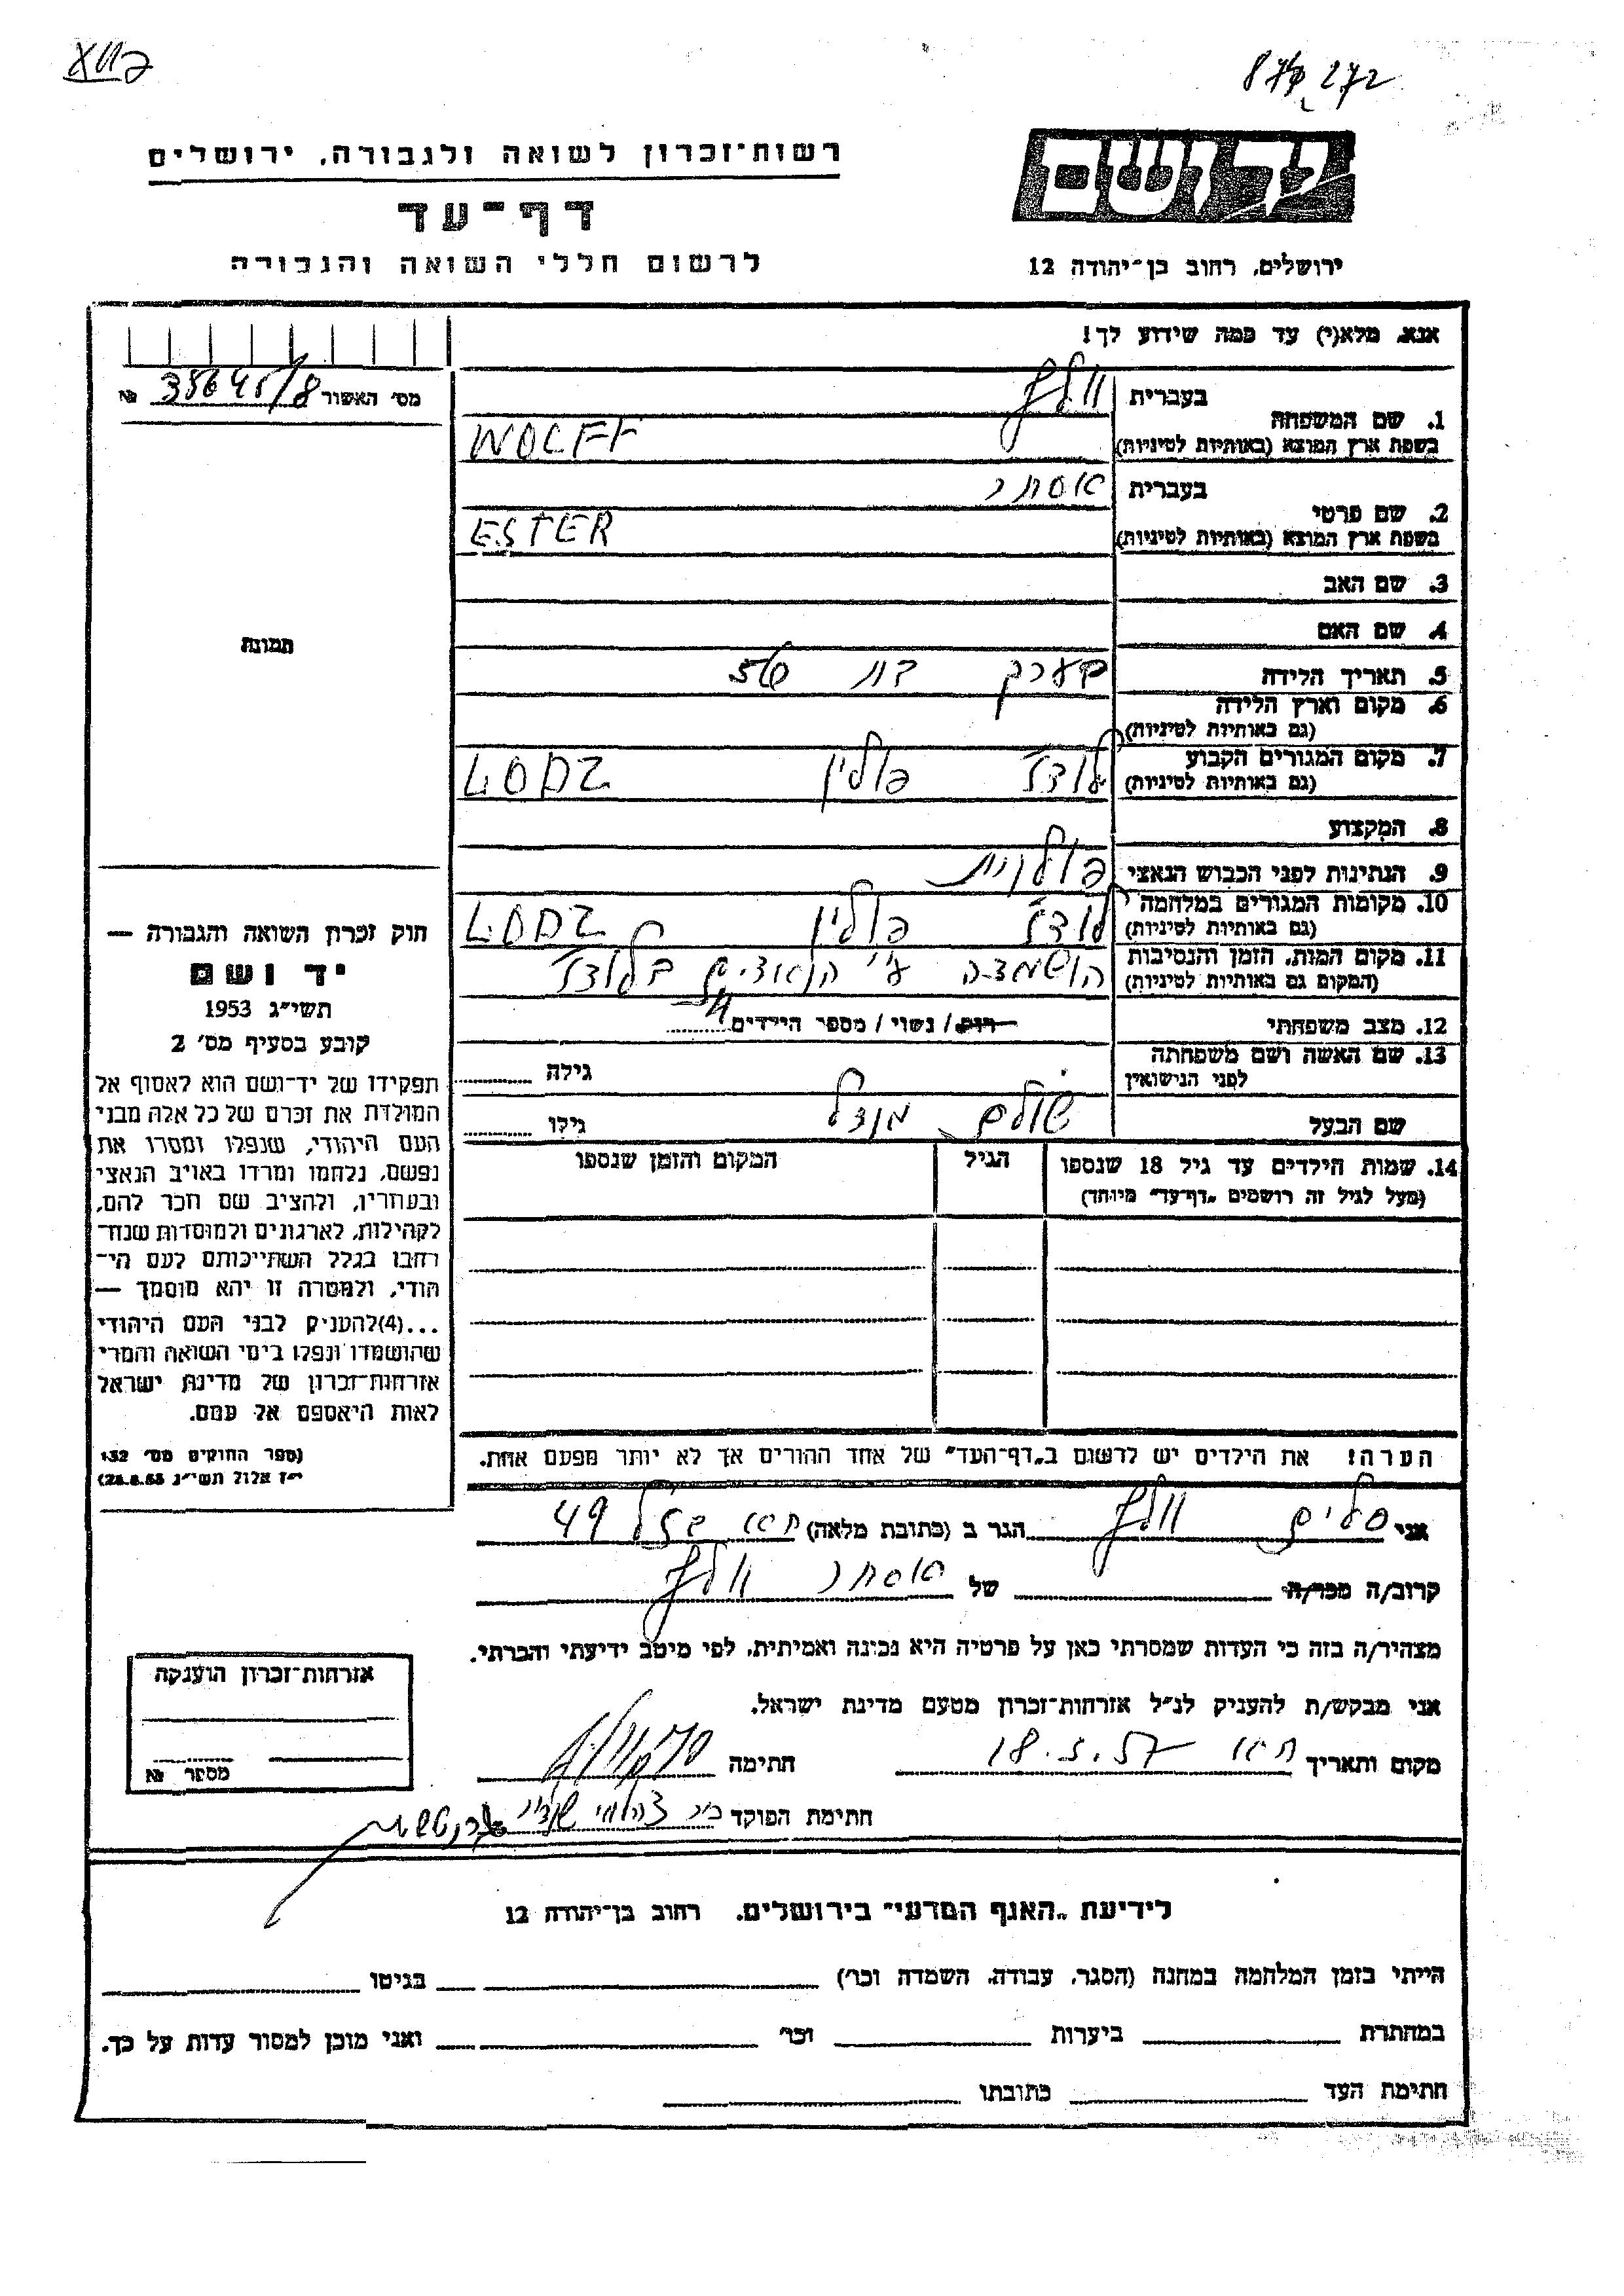 יד ושם
רשות־זכרון לשואה ולגבורה, ירושלים
דף־עד
לרשום חללי השואה והגבורה
ירושלים, רחוב בן־יהודה 12
אנא, מלא(י) עד כמה שידוע לך!
מס׳ האשור 35645/8 №
בעברית וולף
1. שם המשפחה
בשפת ארץ המוצא (באותיות לטיניות) WOLFF
בעברית אסתר
2. שם פרטי
בשפת ארץ המוצא (באותיות לטיניות) ESTER
3. שם האב
4. שם האם
5. תאריך הלידה בערך בת
6. מקום וארץ הלידה
(גם באותיות לטיניות)
7. מקום המגורים הקבוע
(גם באותיות לטיניות) לודז׳ פולין LODZ
8. המקצוע
9. הנתינות לפני הכבוש הנאצי פולנית
10. מקומות המגורים במלחמה
(גם באותיות לטיניות) לודז׳ פולין LODZ
11. מקום המות, הזמן והנסיבות
(המקום גם באותיות לטיניות) הושמדה ע״י הנאצים בלודז׳
12. מצב משפחתי רוק / נשוי / מספר הילדים 4
13. שם האשה ושם משפחתה
לפני הנישואין גילה
שם הבעל שולם מנדל גילו
14. שמות הילדים עד גיל 18 שנספו הגיל המקום והזמן שנספו
(מעל לגיל זה רושמים „דף־עד״ מיוחד)
הערה! את הילדים יש לרשום ב„דף־העד״ של אחד ההורים אך לא יותר מפעם אחת.
תמונה
חוק זכרון השואה והגבורה —
יד ושם
תשי״ג 1953
קובע בסעיף מס׳ 2
תפקידו של יד־ושם הוא לאסוף אל
המולדת את זכרם של כל אלה מבני
העם היהודי, שנפלו ומסרו את
נפשם, נלחמו ומרדו באויב הנאצי
ובעוזריו, ולהציב שם וזכר להם,
לקהילות, לארגונים ולמוסדות שנח־
רחבו בגלל השתייכותם לעם הי־
הודי, ולמטרה זו יהא מוסמך —
...(4)להעניק לבני העם היהודי
שהושמדו ונפלו בימי השואה והמרי
אזרחות־זכרון של מדינת ישראל
לאות היאספם אל עמם.
(ספר החוקים מס׳ 132
י״ז אלול תשי״ג 28.8.53)
אני סלים וולף הגר ב (כתובת מלאה) ת״א 49
קרוב/ה מכר/ה של אסתר וולף
מצהיר/ה בזה כי העדות שמסרתי כאן על פרטיה היא נכונה ואמיתית, לפי מיטב ידיעתי והכרתי.
אני מבקש/ת להעניק לנ״ל אזרחות־זכרון מטעם מדינת ישראל.
מקום ותאריך ת״א 18.5.57 חתימה
חתימת הפוקד
אזרחות־זכרון הוענקה
מספר №
לידיעת „האגף המדעי״ בירושלים, רחוב בן־יהודה 12
הייתי בזמן המלחמה במחנה (הסגר, עבודה, השמדה וכר׳) בגיטו
במחתרת ביערות וכר׳ ואני מוכן למסור עדות על כך.
חתימת העד כתובתו